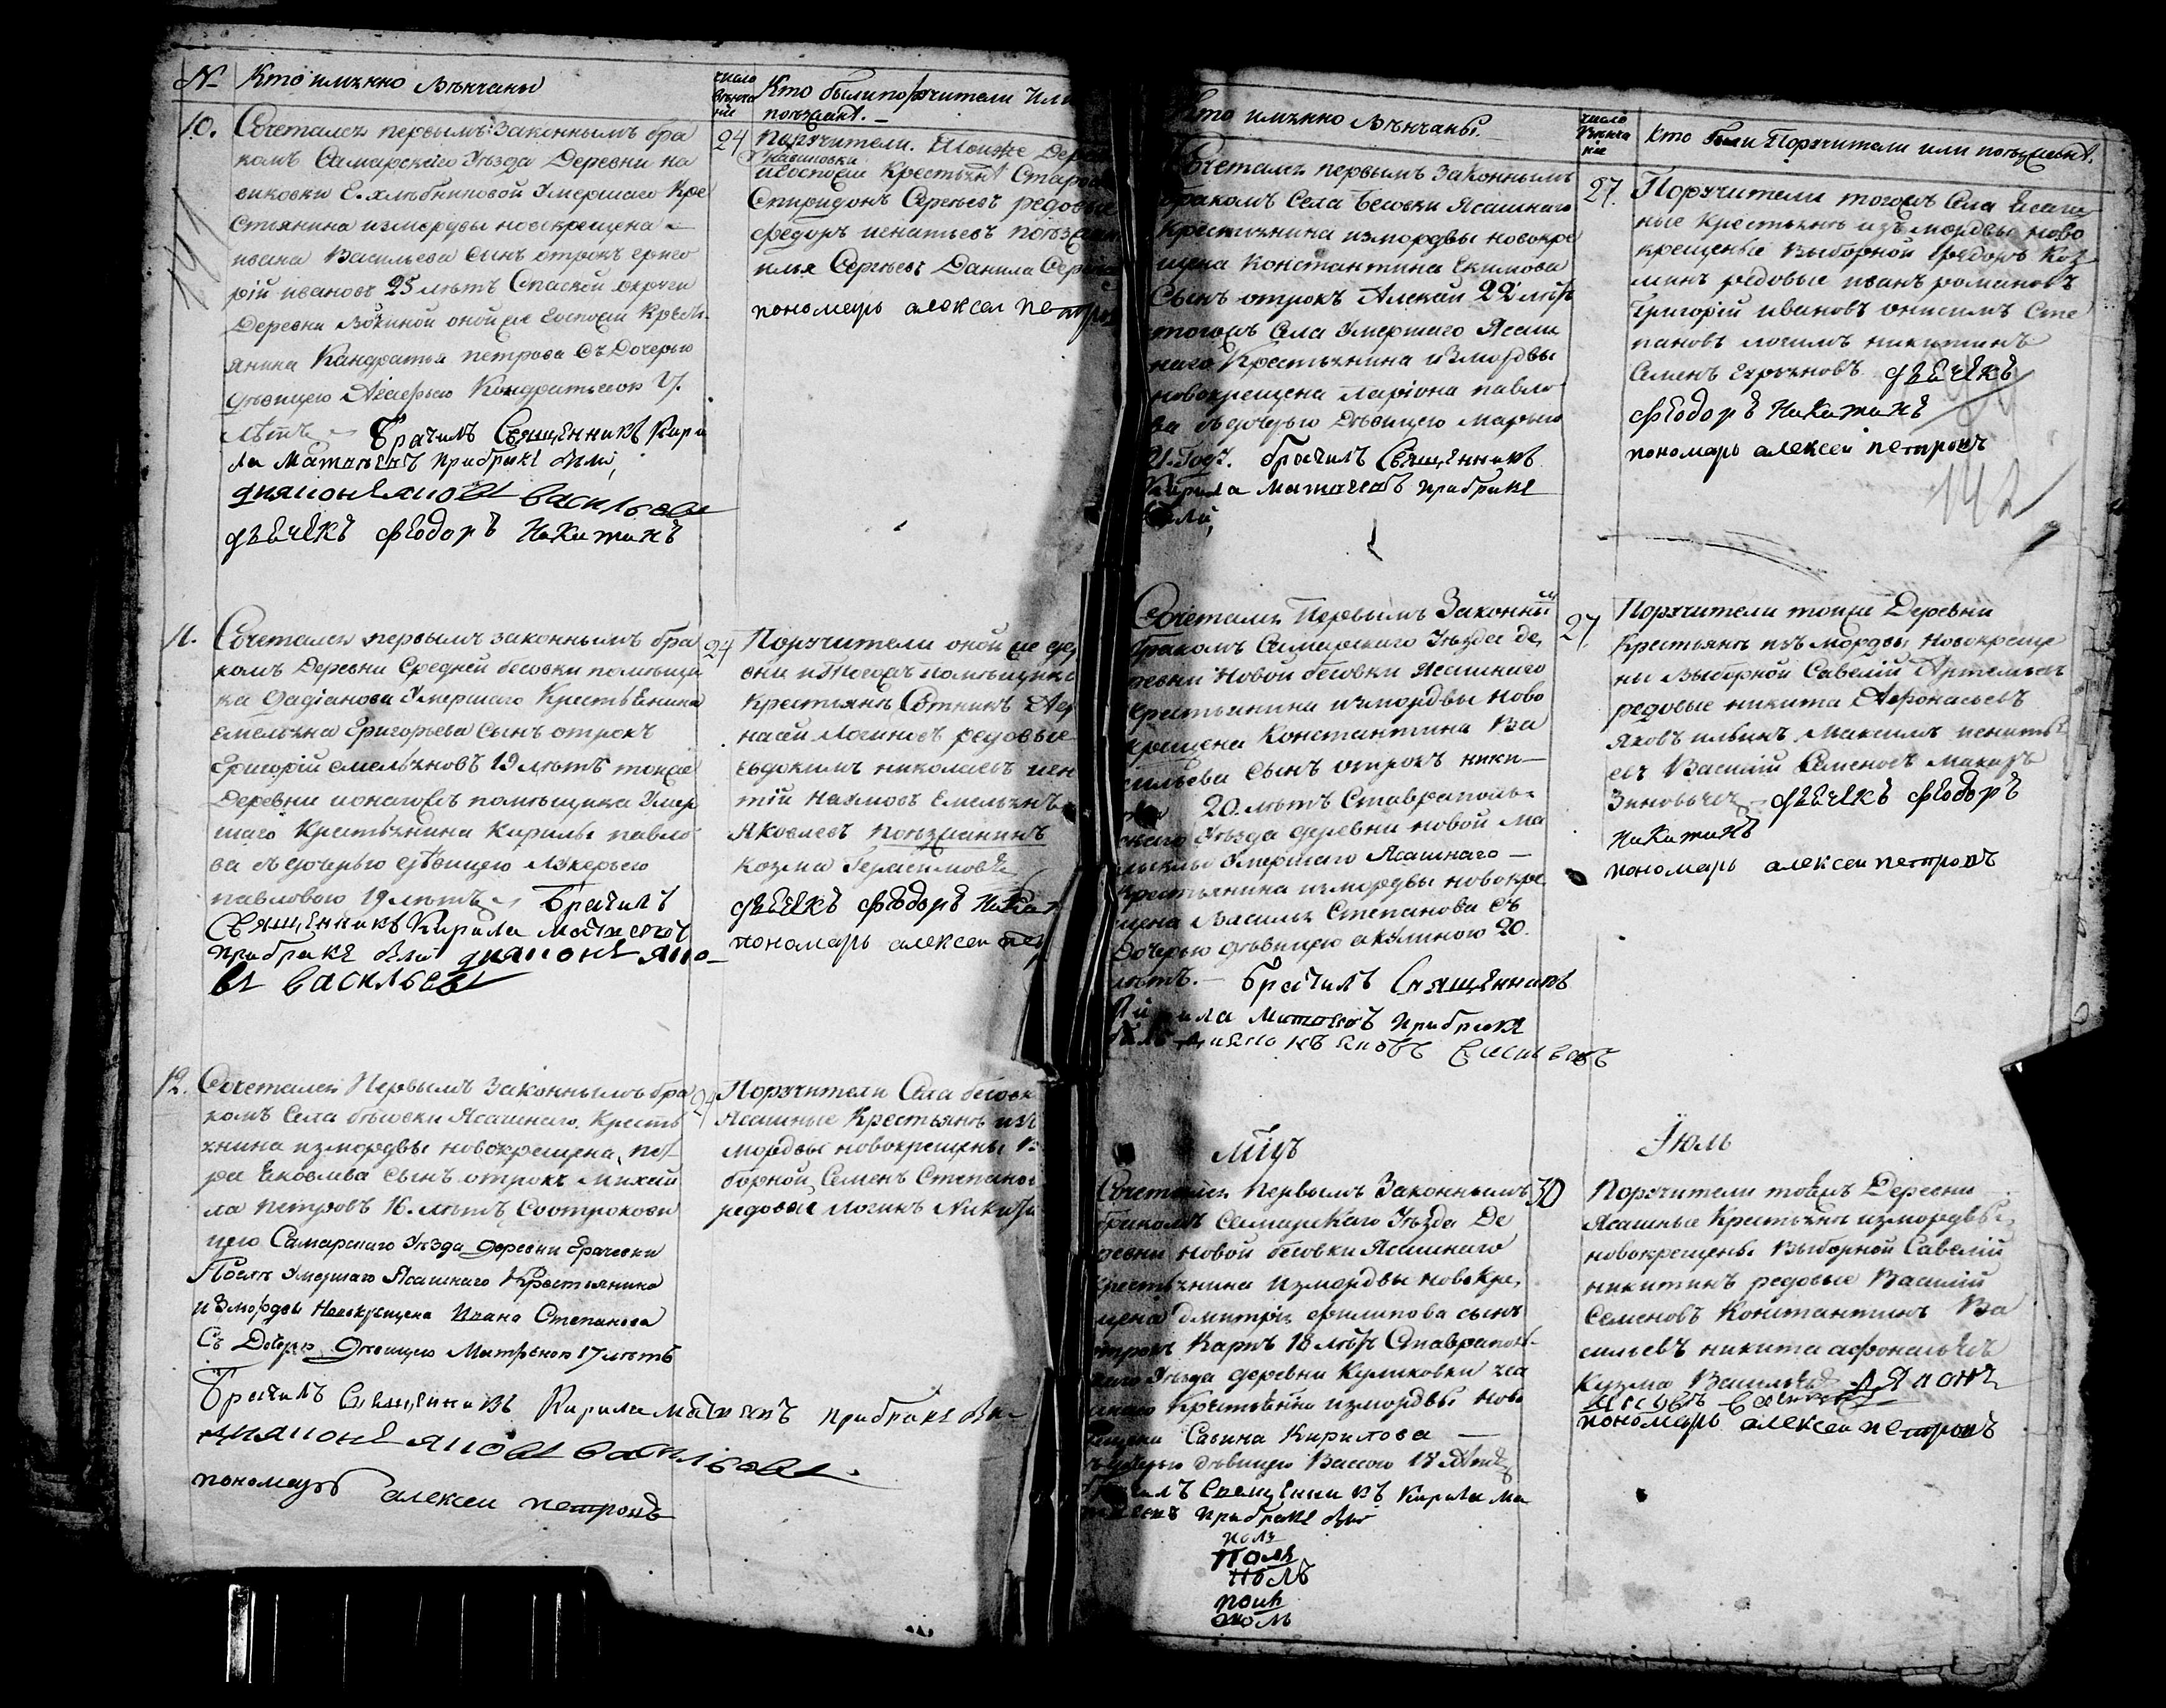 № Кто имѧнно Вѣнчаны
число венча ние
Кто были порѹчители или
поѣзжанѣ. —
10. Сочетался первымъ законнымъ бра
комъ Самарскаго Уѣзда Деревни
Умершаго Кре
стьянина измордвы новокрещена
ивана Васильева Сынъ отрокъ григо
рій ивановъ 25 лѣтъ Спаской округи
Деревни оной же Госпожи Крѣсть
янина Кандратья петрова Съ Дочерью
дѣвицею Кондратьевою
лѣтъ Брачилъ Священникъ Кири
ла Матвѣевъ прибраке были,
диякон Яков Васильевъ
дьѧчекъ Ѳеодоръ Никитинъ
24 порѹчители. Тоиже Дерев
госпожи Крестьянѣ Старос
Спиридонъ Сергѣевъ редовые
Ѳедоръ игнатьевъ поѣзжан
илья Сергѣевъ Данила Сергѣев
пономарь алексеи петров
11. Сочетался первымъ законнымъ бра
комъ Деревни Средней бесовки помѣщи
ка Дадіанова Умершаго Крестьѧнина
емельѧна Григорьева Сынъ отрокъ
Григорій емельѧновъ 19 лѣтъ тоиже
Деревни ионагожъ помѣщика Умер
шаго Крестьѧнина Кирилы павло
ва съ дочерью дѣвицею Лукерьею
павловою 19 лѣтъ Брачилъ
Священникъ Кирила Матвѣевъ
прибраке были диякон Яко
в Васильевъ
24 Порѹчители оной же дер
вни и тогожъ помѣщика
крестьянѣ Сотникъ
насей Логиновъ редовые
евдокимъ николаевъ игн
тій Наумовъ Емельѧнъ
Яковлевъ поѣзжанинъ
козма Герасимовъ
дьѧчекъ Ѳеодоръ Никит
пономарь алексеи пет
12. Сочетался Первымъ Законнымъ бра
комъ Села бѣсовки Ясашнаго Кресть
ѧнина измордвы новокрещена, пет
ра Яковлева сынъ отрокъ Михай
ла петровъ 16. лѣтъ Соотрокови
цею Самарскаго Уѣзда деревни
Умершаго Ясашнаго Крестьянина
измордвы Новокрещена Ивана Степанова
Съ Дочерью Дѣвицею Матреною 17 лѣтъ
Брачилъ Священникъ Кирила Матвѣевъ прибраке были
диякон Яков Васильевъ
пономарь алексеи петровъ
24 Порѹчители Села бесовк
Ясашные Крестьянѣ изъ
мордвы новокрещены Вы
борной Семенъ Степанов
редовые Логинъ Никити
Кто имѧнно Вѣнчаны.
число Венча ніе
кто были Порѹчители или поѣзжанѣ.
Сочетался первымъ законнымъ
бракомъ Села Бесовки Ясашнаго
Крестьѧнина измордвы новокре
щена Константина Екимова
Сынъ отрокъ Алексѣй 22 лѣтъ
тогожъ Села Умершаго Ясаш
наго Крестьѧнина измордвы
новокрещена Ларіона павло
ва съ дочерью Дѣвицею Марьею
21. Году. брачилъ Священникъ
Кирила Матвѣевъ прибраке
были,
27. Порѹчители тогожъ Села Ясаш
ные Крестьянѣ изъ мордвы ново
крещеные Выборной Ѳедоръ Коз
минъ редовые иванъ романовъ
Григорій ивановъ онисимъ Сте
пановъ логинъ никитинъ
Семенъ дьѧчекъ
Ѳеодоръ Никитинъ
пономарь алексеи петровъ
142
Сочетался Первымъ Законны
бракомъ Самарскаго Уѣзда де
ревни Новой бесовки Ясашнаго
крестьянина измордвы ново
крещена Константина Ва
сильева сынъ отрокъ ники
20. лѣтъ Ставраполь
скаго Уѣзда деревни новой Ма
лыклы Умершаго Ясашнаго —
Крестьянина измордвы новокре
щена Василья Степанова Съ
Дочерью дѣвицею акулиною 20.
лѣтъ. — Брачилъ Священникъ
Кирила Матвѣевъ прибраке
были Диякон Яковъ Васильевъ
27 Порѹчители тоиже Деревни
Крестьянѣ изъ мордвы, новокреще
ны Выборной Савелій Артемьевъ
редовые никита Афонасьевъ
Яковъ ильинъ Максимъ игнатьь
евъ Василій Семеновъ Макаръ
Зиновьевъ дьѧчекъ Ѳеодоръ
Никитинъ
пономарь алексеи петровъ
Мцъ Іюль
Сочетался первымъ Законнымъ
бракомъ Самарскаго Уѣзда Де
ревни новой бесовки Ясашнаго
крестьѧнина измордвы новокре
щена Дмитрія филипова сынъ
отрокъ Карпъ 18 лѣтъ Ставрапол
скаго Уѣзда деревни Куликовки
Крестьѧнина измордвы ново
крещена Савина Кирилова —
съ дочерью дѣвицею Васою 18 лѣтъ
Брачилъ Священникъ Кирила Ма
твѣевъ прибраке были
30 Порѹчители тоѧжъ Деревни
Ясашные Крестьянѣ измордвы
новокрещены Выборной Савелій
никитинъ редовые Василій
Семеновъ Константинъ Ва
сильевъ никита афонасьевъ
Кузма Васильевъ диякон
Яковъ Васильевъ
пономарь алексеи петровъ